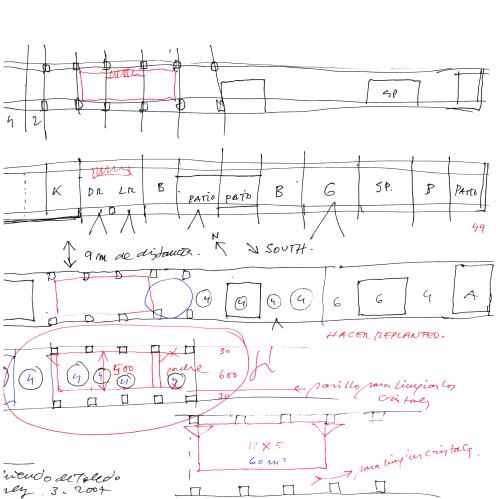 SP
4 2
K DR LR B PATIO PATIO B G SP. B PATIO
49
9 m de distancia.
N
SOUTH.
4 4 4 4 6 6 4 A
HACER REPLANTEO.
4 4 4 4
500
padre
30
600
30
pasillo para limpiar los
cristales
12 x 5
60 m²
para limpiar cristales.
viviendo de Toledo
3. 2007